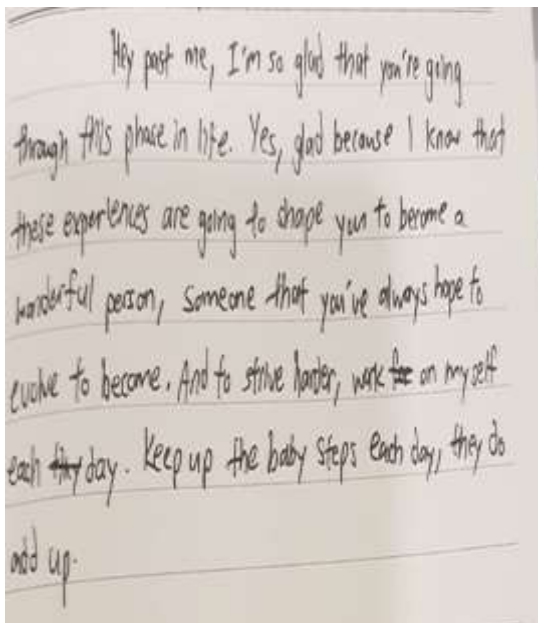 Hey past me, I'm so glad that you're going
through this phase in life. Yes, glad because I know that
these experiences are going to shape you to become a
wonderful person, someone that you've always hope to
evolve to become. And to strive harder, work on myself
each day. Keep up the baby steps each day, they do
add up.